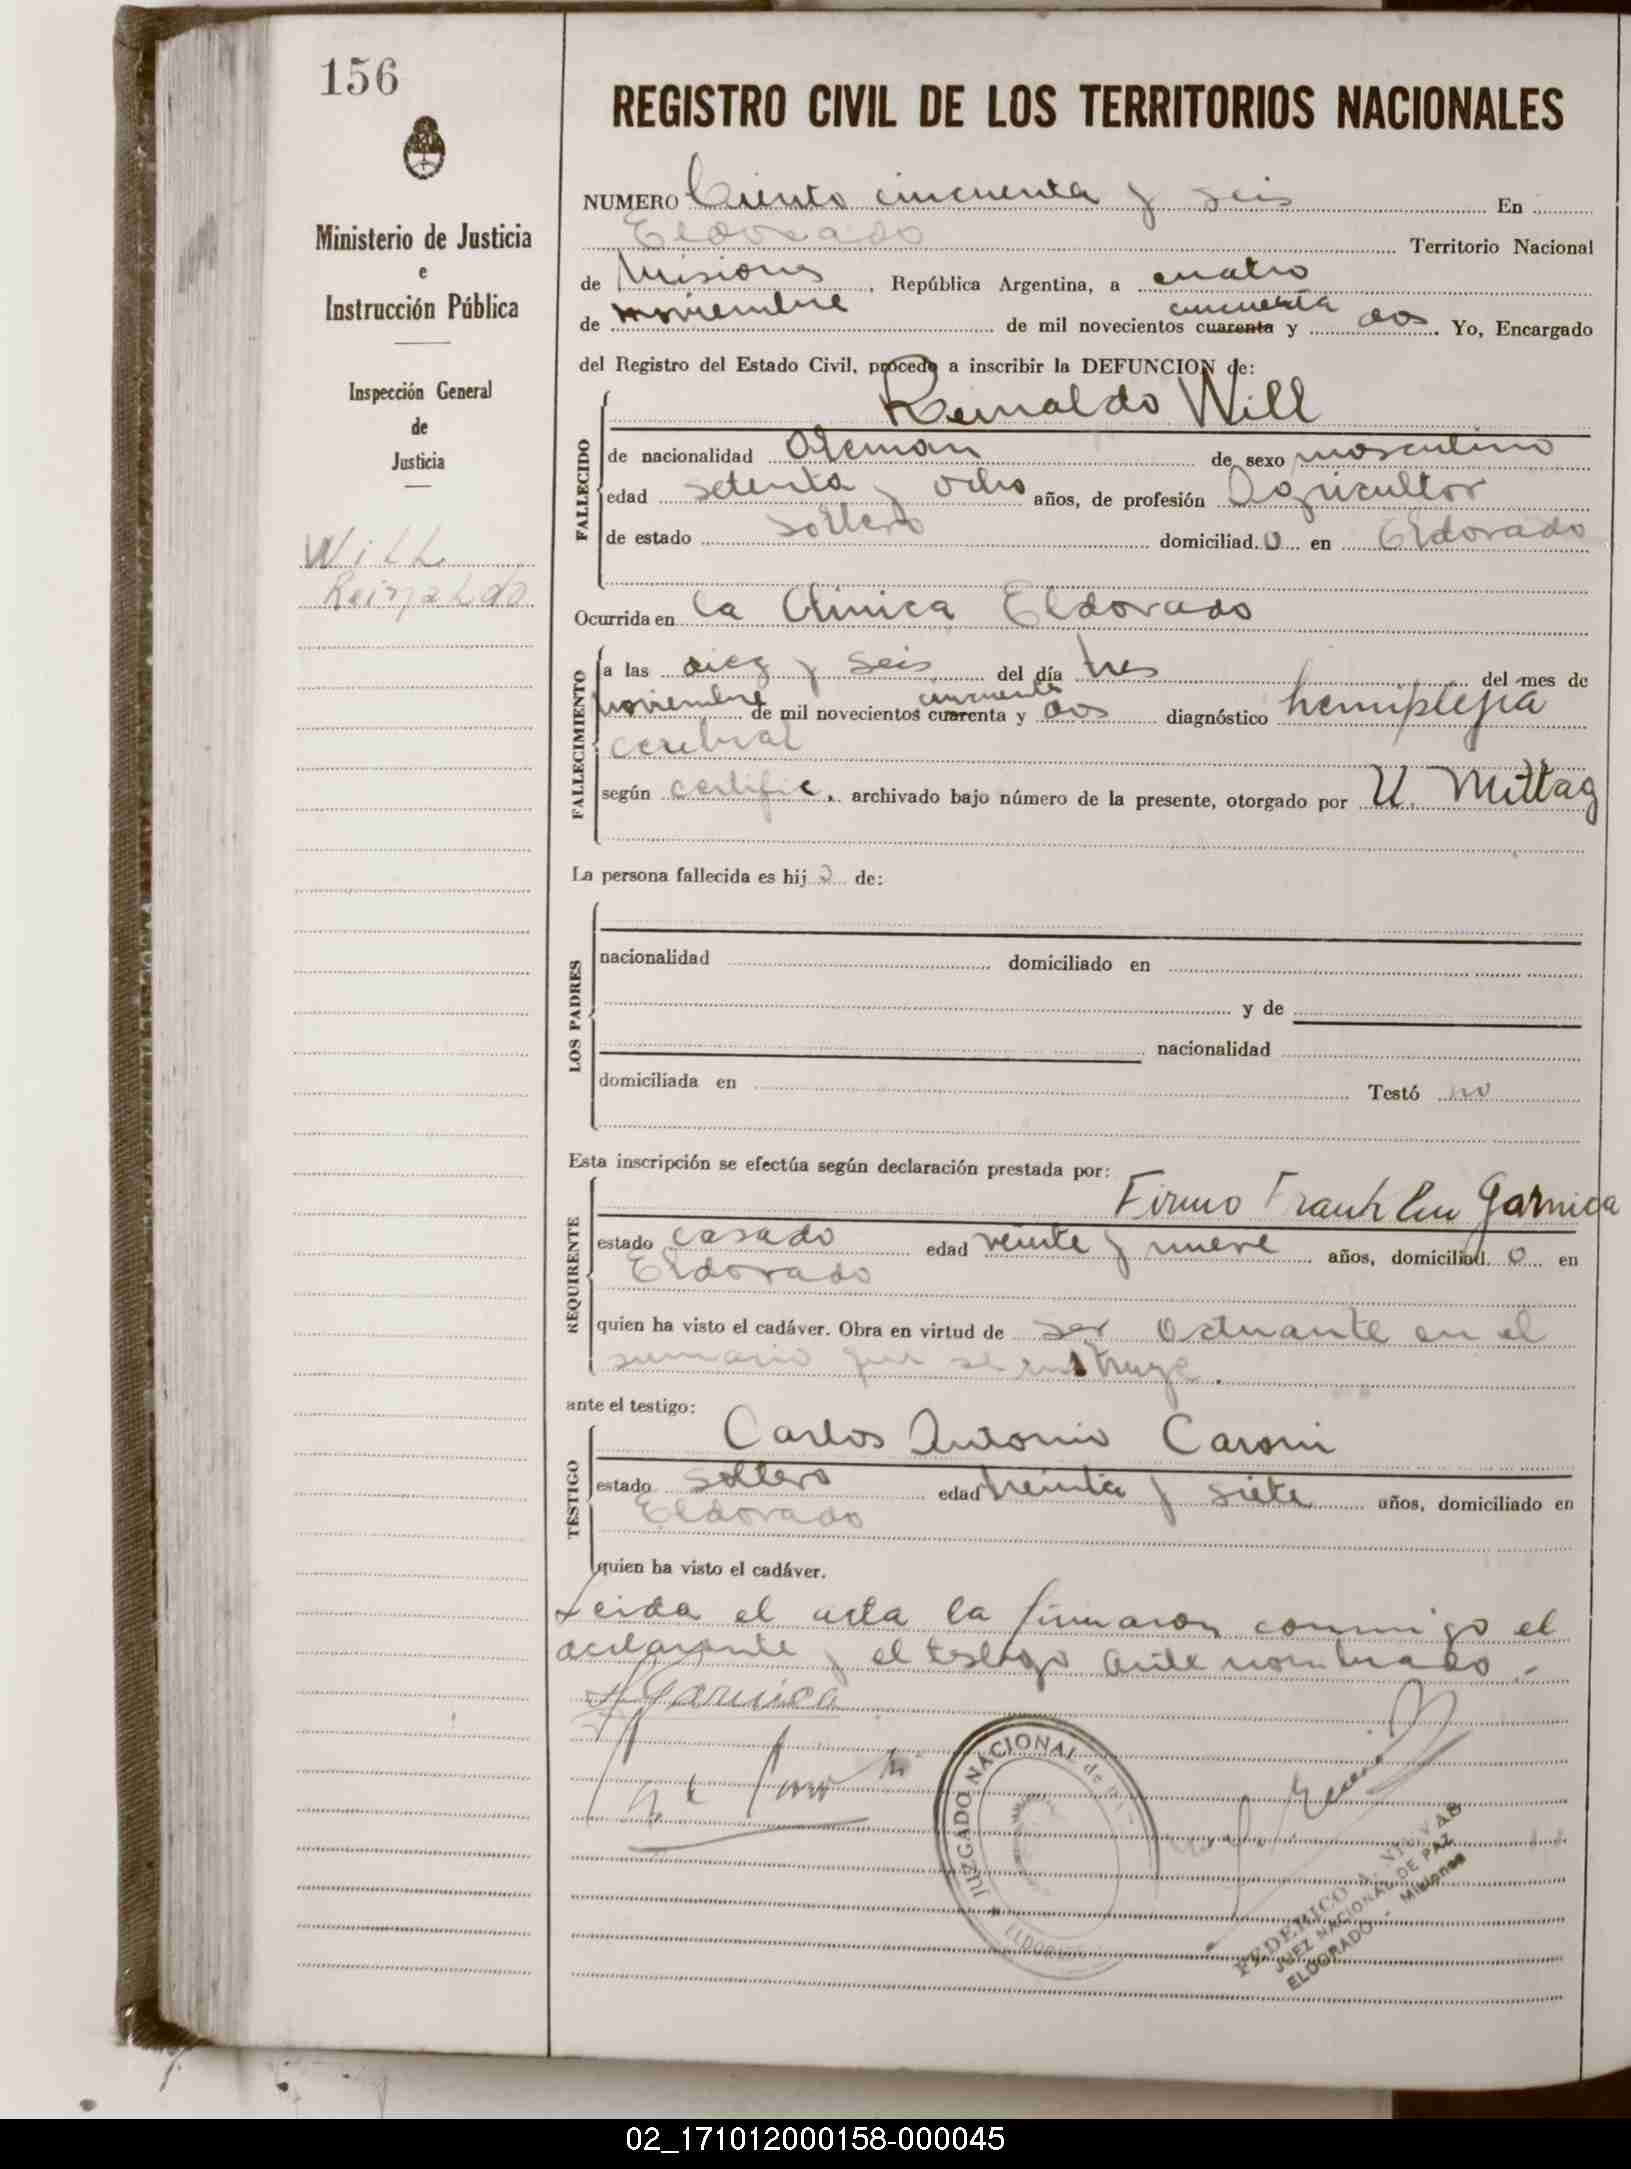 156
REGISTRO CIVIL DE LOS TERRITORIOS NACIONALES
Ministerio de Justicia
e
Instrucción Pública
Inspección General
de
Justicia
Will
Reinaldo
NUMERO Ciento cincuenta y seis En
Eldorado Territorio Nacional
de Misiones, República Argentina, a cuatro
cincuenta
de noviembre de mil novecientos cuarenta y dos. Yo, Encargado
del Registro del Estado Civil, procedo a inscribir la DEFUNCION de:
Reinaldo Will
FALLECIDO
de nacionalidad Aleman de sexo masculino
edad setenta y ocho años, de profesión Agricultor
de estado soltero domiciliad.o en Eldorado
Ocurrida en la Clinica Eldorado
FALLECIMIENTO
a las diez y seis del día tres del mes de
cincuenta
noviembre de mil novecientos cuarenta y dos diagnóstico hemiplejia
cerebral
según certific. archivado bajo número de la presente, otorgado por U. Mittag
La persona fallecida es hijo de:
LOS PADRES
nacionalidad domiciliado en
y de
nacionalidad
domiciliada en Testó no
Esta inscripción se efectúa según declaración prestada por:
Firmo Franklin Garnica
REQUIRENTE
estado casado edad veinte y nueve años, domiciliad.o en
Eldorado
quien ha visto el cadáver. Obra en virtud de ser actuante en el
sumario que se instruye.
ante el testigo:
Carlos Antonio Caroni
TESTIGO
estado soltero edad treinta y siete años, domiciliado en
Eldorado
quien ha visto el cadáver.
Leida el acta la firmaron conmigo el
declarante y el testigo ante nombrado.-
Garnica
JUZGADO NACIONAL de
ELDORADO
FEDERICO A. VIVAS
JUEZ NACIONAL DE PAZ
ELDORADO - Misiones
02_171012000158-000045